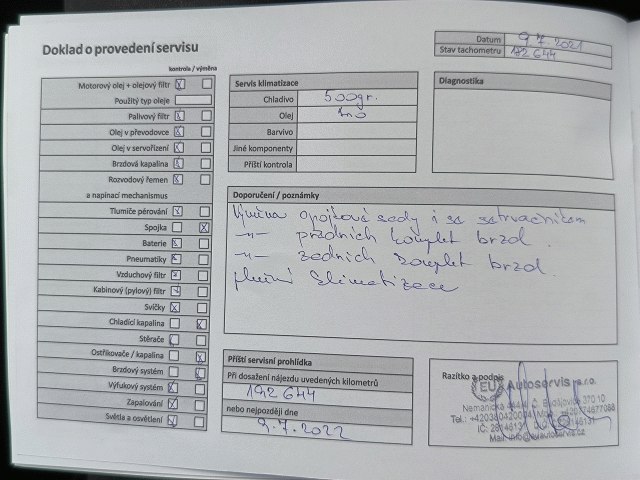 Doklad o provedení servisu
Datum 9.7.2021
Stav tachometru 182 644
kontrola / výměna
Motorový olej + olejový filtr
Použitý typ oleje
Palivový filtr
Olej v převodovce
Olej v servořízení
Brzdová kapalina
Rozvodový řemen
a napínací mechanismus
Tlumiče pérování
Spojka
Baterie
Pneumatiky
Vzduchový filtr
Kabinový (pylový) filtr
Svíčky
Chladící kapalina
Stěrače
Ostřikovače / kapalina
Brzdový systém
Výfukový systém
Zapalování
Světla a osvětlení
Servis klimatizace
Chladivo 500gr.
Olej Ano
Barvivo
Jiné komponenty
Příští kontrola
Diagnostika
Doporučení / poznámky
Výměna spojková sady i se setrvačníkem
-"- předních komplet brzd.
-"- zadních komplet brzd.
plnění klimatizace
Příští servisní prohlídka
Při dosažení nájezdu uvedených kilometrů
192 644
nebo nejpozději dne
9.7.2022
Razítko a podpis
EU Autoservis s.r.o.
Nemanická Č. Budějovice 370 10
Tel.: +420380420004
Mail: info@euautoservis.cz